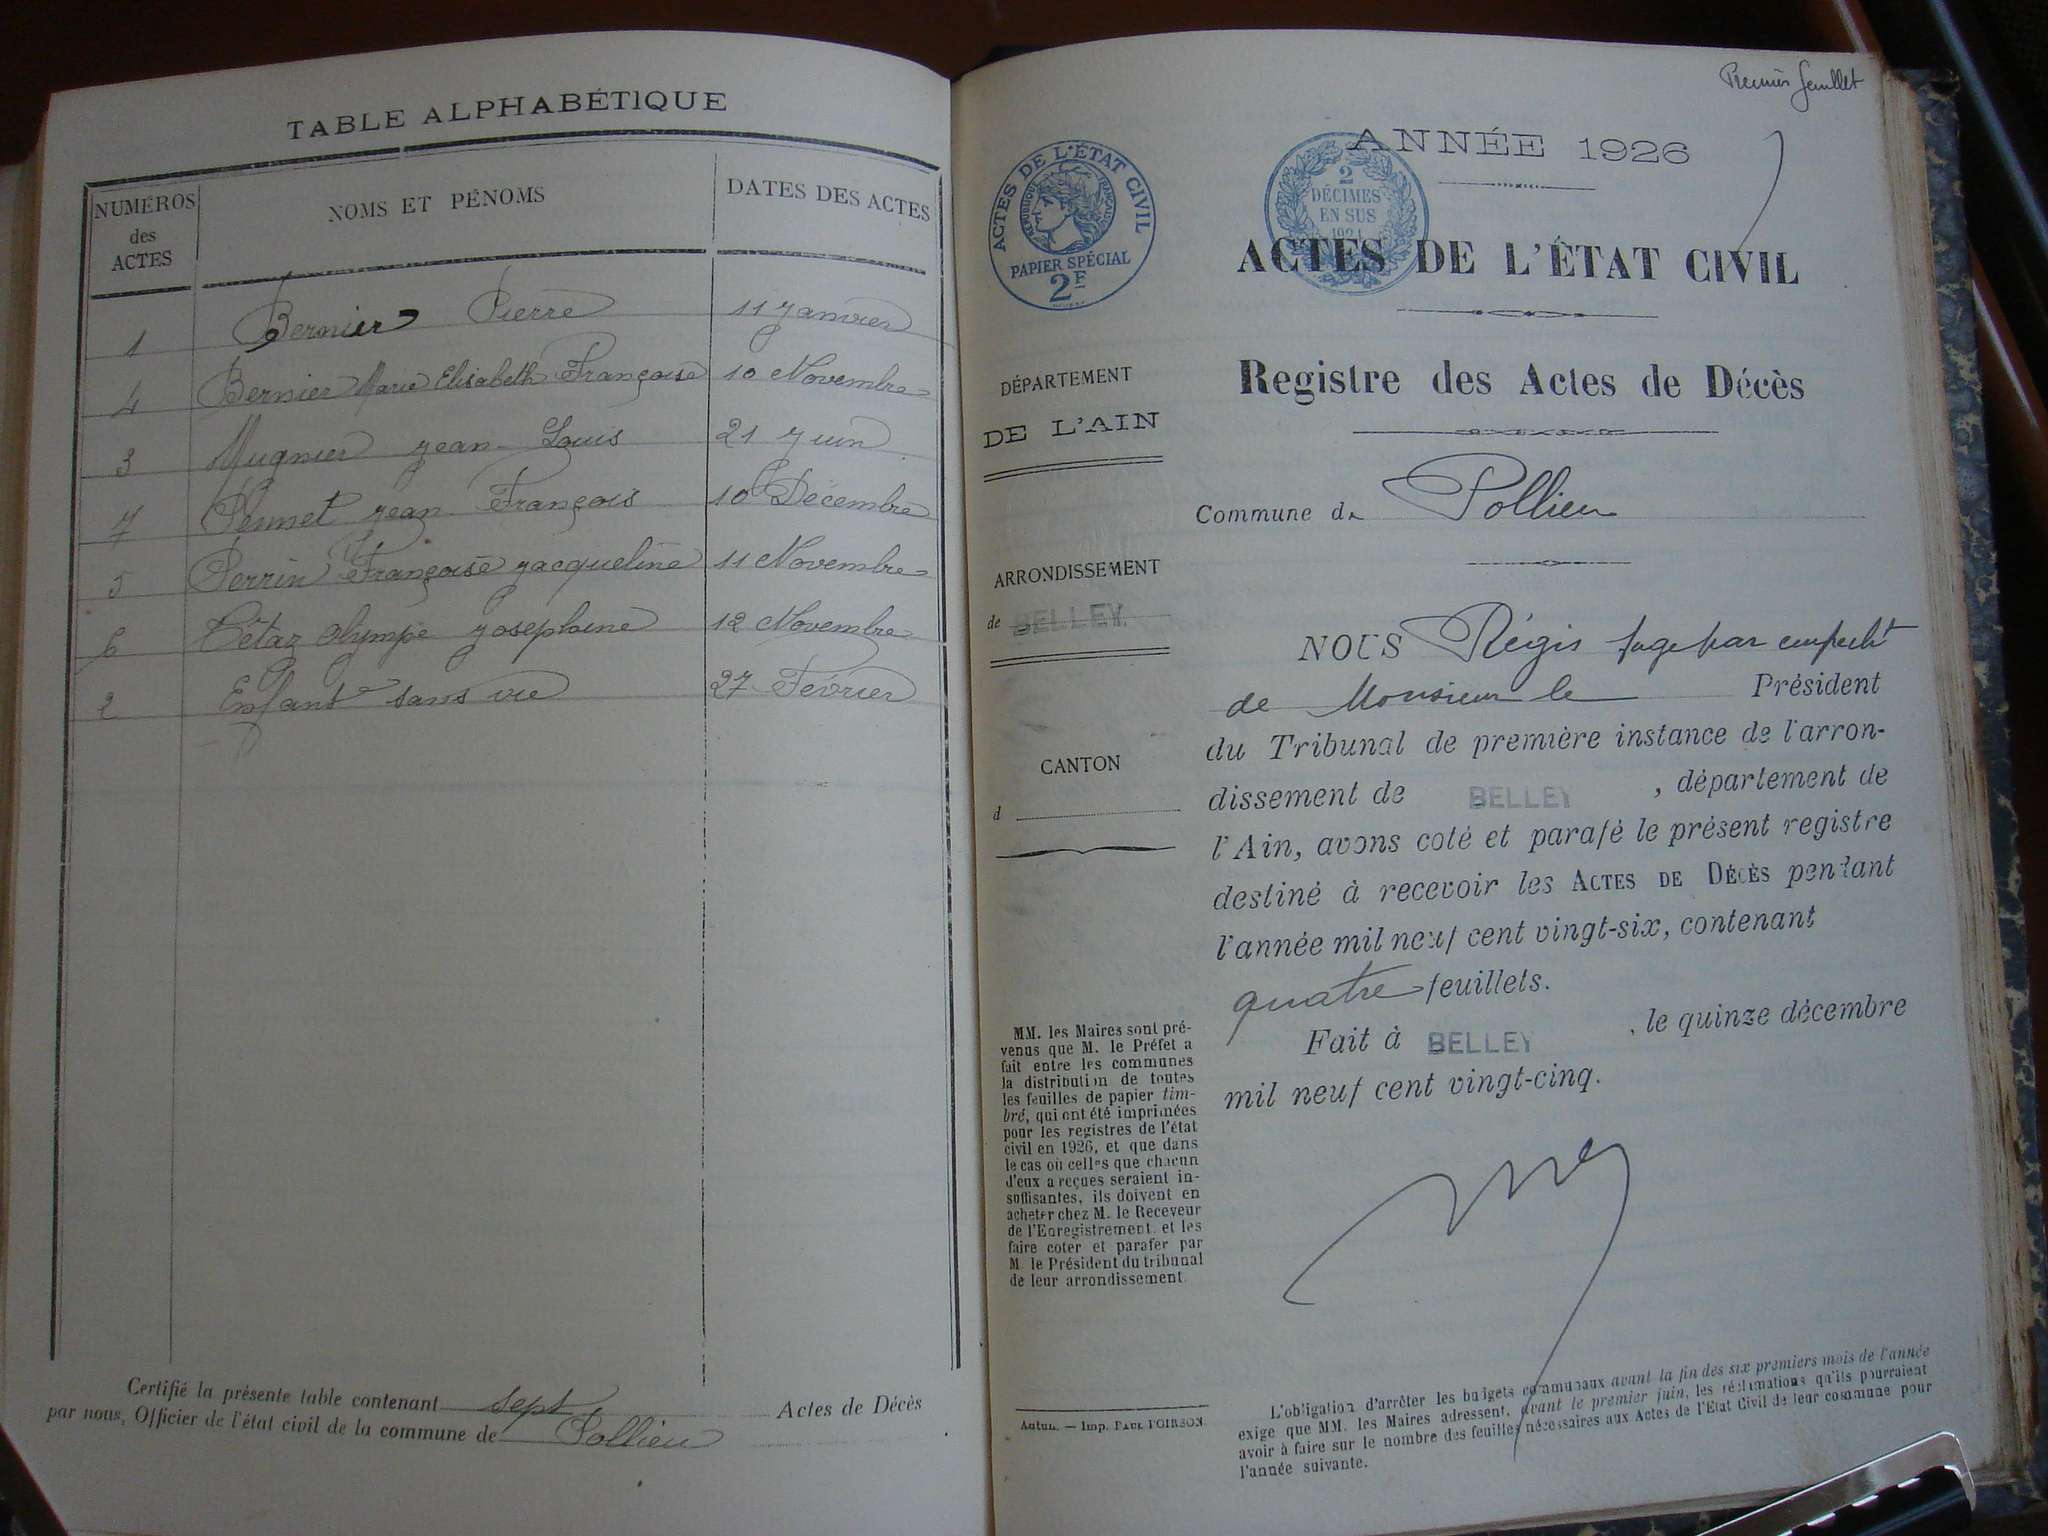 TABLE ALPHABÉTIQUE
NUMÉROS des ACTES
NOMS ET PÉNOMS
DATES DES ACTES
1 Bernier Pierre 11 Janvier
4 Bernier Marie Elisabeth Françoise 10 Novembre
3 Mugnier Jean Louis 21 Juin
7 Pennet Jean François 10 Décembre
5 Perrin Françoise Jacqueline 11 Novembre
6 Tétaz Olympe Joséphine 12 Novembre
2 Enfant sans vie 27 Février
Certifié la présente table contenant sept Actes de Décès
par nous, Officier de l'état civil de la commune de Pollieu
Premier feuillet
ANNÉE 1926
ACTES DE L'ÉTAT CIVIL
RÉPUBLIQUE FRANÇAISE
PAPIER SPÉCIAL
2F
2
DÉCIMES
EN SUS
ACTES DE L'ÉTAT CIVIL
Registre des Actes de Décès
Commune de Pollieu
DÉPARTEMENT
DE L'AIN
ARRONDISSEMENT
de BELLEY.
CANTON
d
MM. les Maires sont pré-
venus que M. le Préfet a
fait entre les communes
la distribution de toutes
les feuilles de papier tim-
bré, qui ont été imprimées
pour les registres de l'état
civil en 1926, et que dans
le cas où celles que chacun
d'eux a reçues seraient in-
suffisantes, ils doivent en
acheter chez M. le Receveur
de l'Enregistrement et les
faire coter et parafer par
M. le Président du tribunal
de leur arrondissement.
Autun. — Imp. PAUL POIRSON.
NOUS Régis juge par empecht
de Monsieur le Président
du Tribunal de première instance de l'arron-
dissement de BELLEY, département de
l'Ain, avons coté et parafé le présent registre
destiné à recevoir les ACTES DE DÉCÈS pendant
l'année mil neuf cent vingt-six, contenant
quatre feuillets.
Fait à BELLEY, le quinze décembre
mil neuf cent vingt-cinq.
L'obligation d'arrêter les budgets communaux avant la fin des six premiers mois de l'année
exige que MM. les Maires adressent, avant le premier juin, les réclamations qu'ils pourraient
avoir à faire sur le nombre des feuilles nécessaires aux Actes de l'État Civil de leur commune pour
l'année suivante.